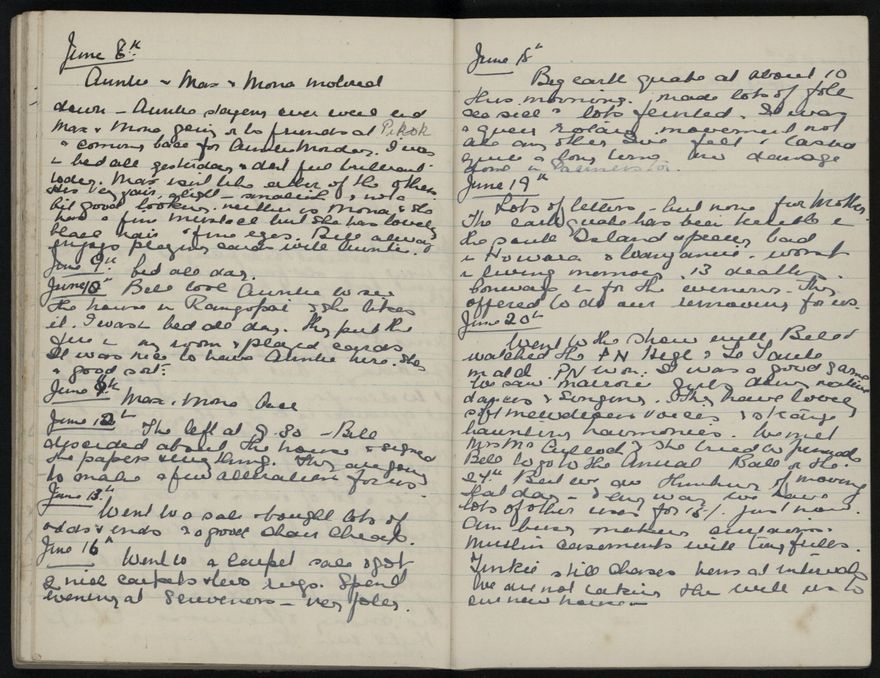 June 8th
Auntie & Max & Mona motored
down - Auntie staying over week end
Max & Mona going on to friends at
& coming back for Auntie Monday. I was
in bed all yesterday & don't feel brilliant
today. Max isn't like either of the others
He's very fair, slight - smallish & not a
bit good looking. neither is Mona & she
has a fine but she has lovely
black hair & fine eyes. Bill always
enjoys playing cards with Auntie.
June 9th bed all day.
June 10th Bill took Auntie to see
the house in & she likes
it. I was in bed all day. They put the
fire in my room & played cards
It was nice to have Auntie here. She's
a good sort.
June
Max & Mona
June 12th The left at 9.30 - Bill
decided about the house & signed
the papers & everything. They are going
to make a few alterations for us.
June 13th
Went to a sale & bought lots of
odds & ends & a good chair cheap.
June 16th
Went to a carpet sale & got
2 nice carpets & two rugs. Spent
evening at - very jolly.
June 18th
Big earth quake at about 10
this morning. made lots of folk
sea sick & lots fainted. It was
a queer movement not
like any other I've felt & lasted
quite a long time. no damage
done in Palmerston.
June 19th
Lots of letters - but none from Mother.
The earthquake has been terrible in
the South Island & specially bad
in & Wanganui. worst
in living memory. 13 deaths.
in for the evening. They
offered to do our removing for us.
June 20th
Went to the show with Bill &
watched the PN &
match. PN won. It was a good game
We saw Maorie girls doing native
dances & singing. They have lovely
soft voices & strange
haunting harmonies. We met
Mrs McCulloch & she tried to persuade
Bill to go to the Annual Ball on the
27th. But we are thinking of moving
that day - & anyway we have
lots of other uses for 15/- just now.
Am busy making curtains.
Muslin casements with tiny frills.
Tinkie still chases hens at intervals
We are not taking the with us to
our new house -